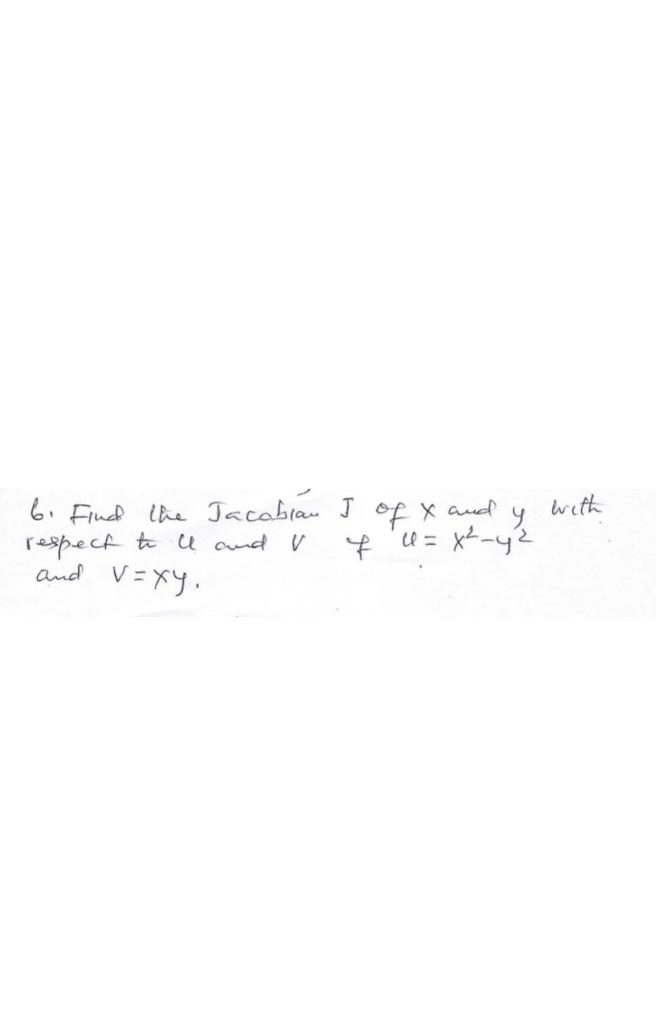 6. Find the Jacobian J of x and y with
respect to u and v if u = x²-y²
and v = xy.